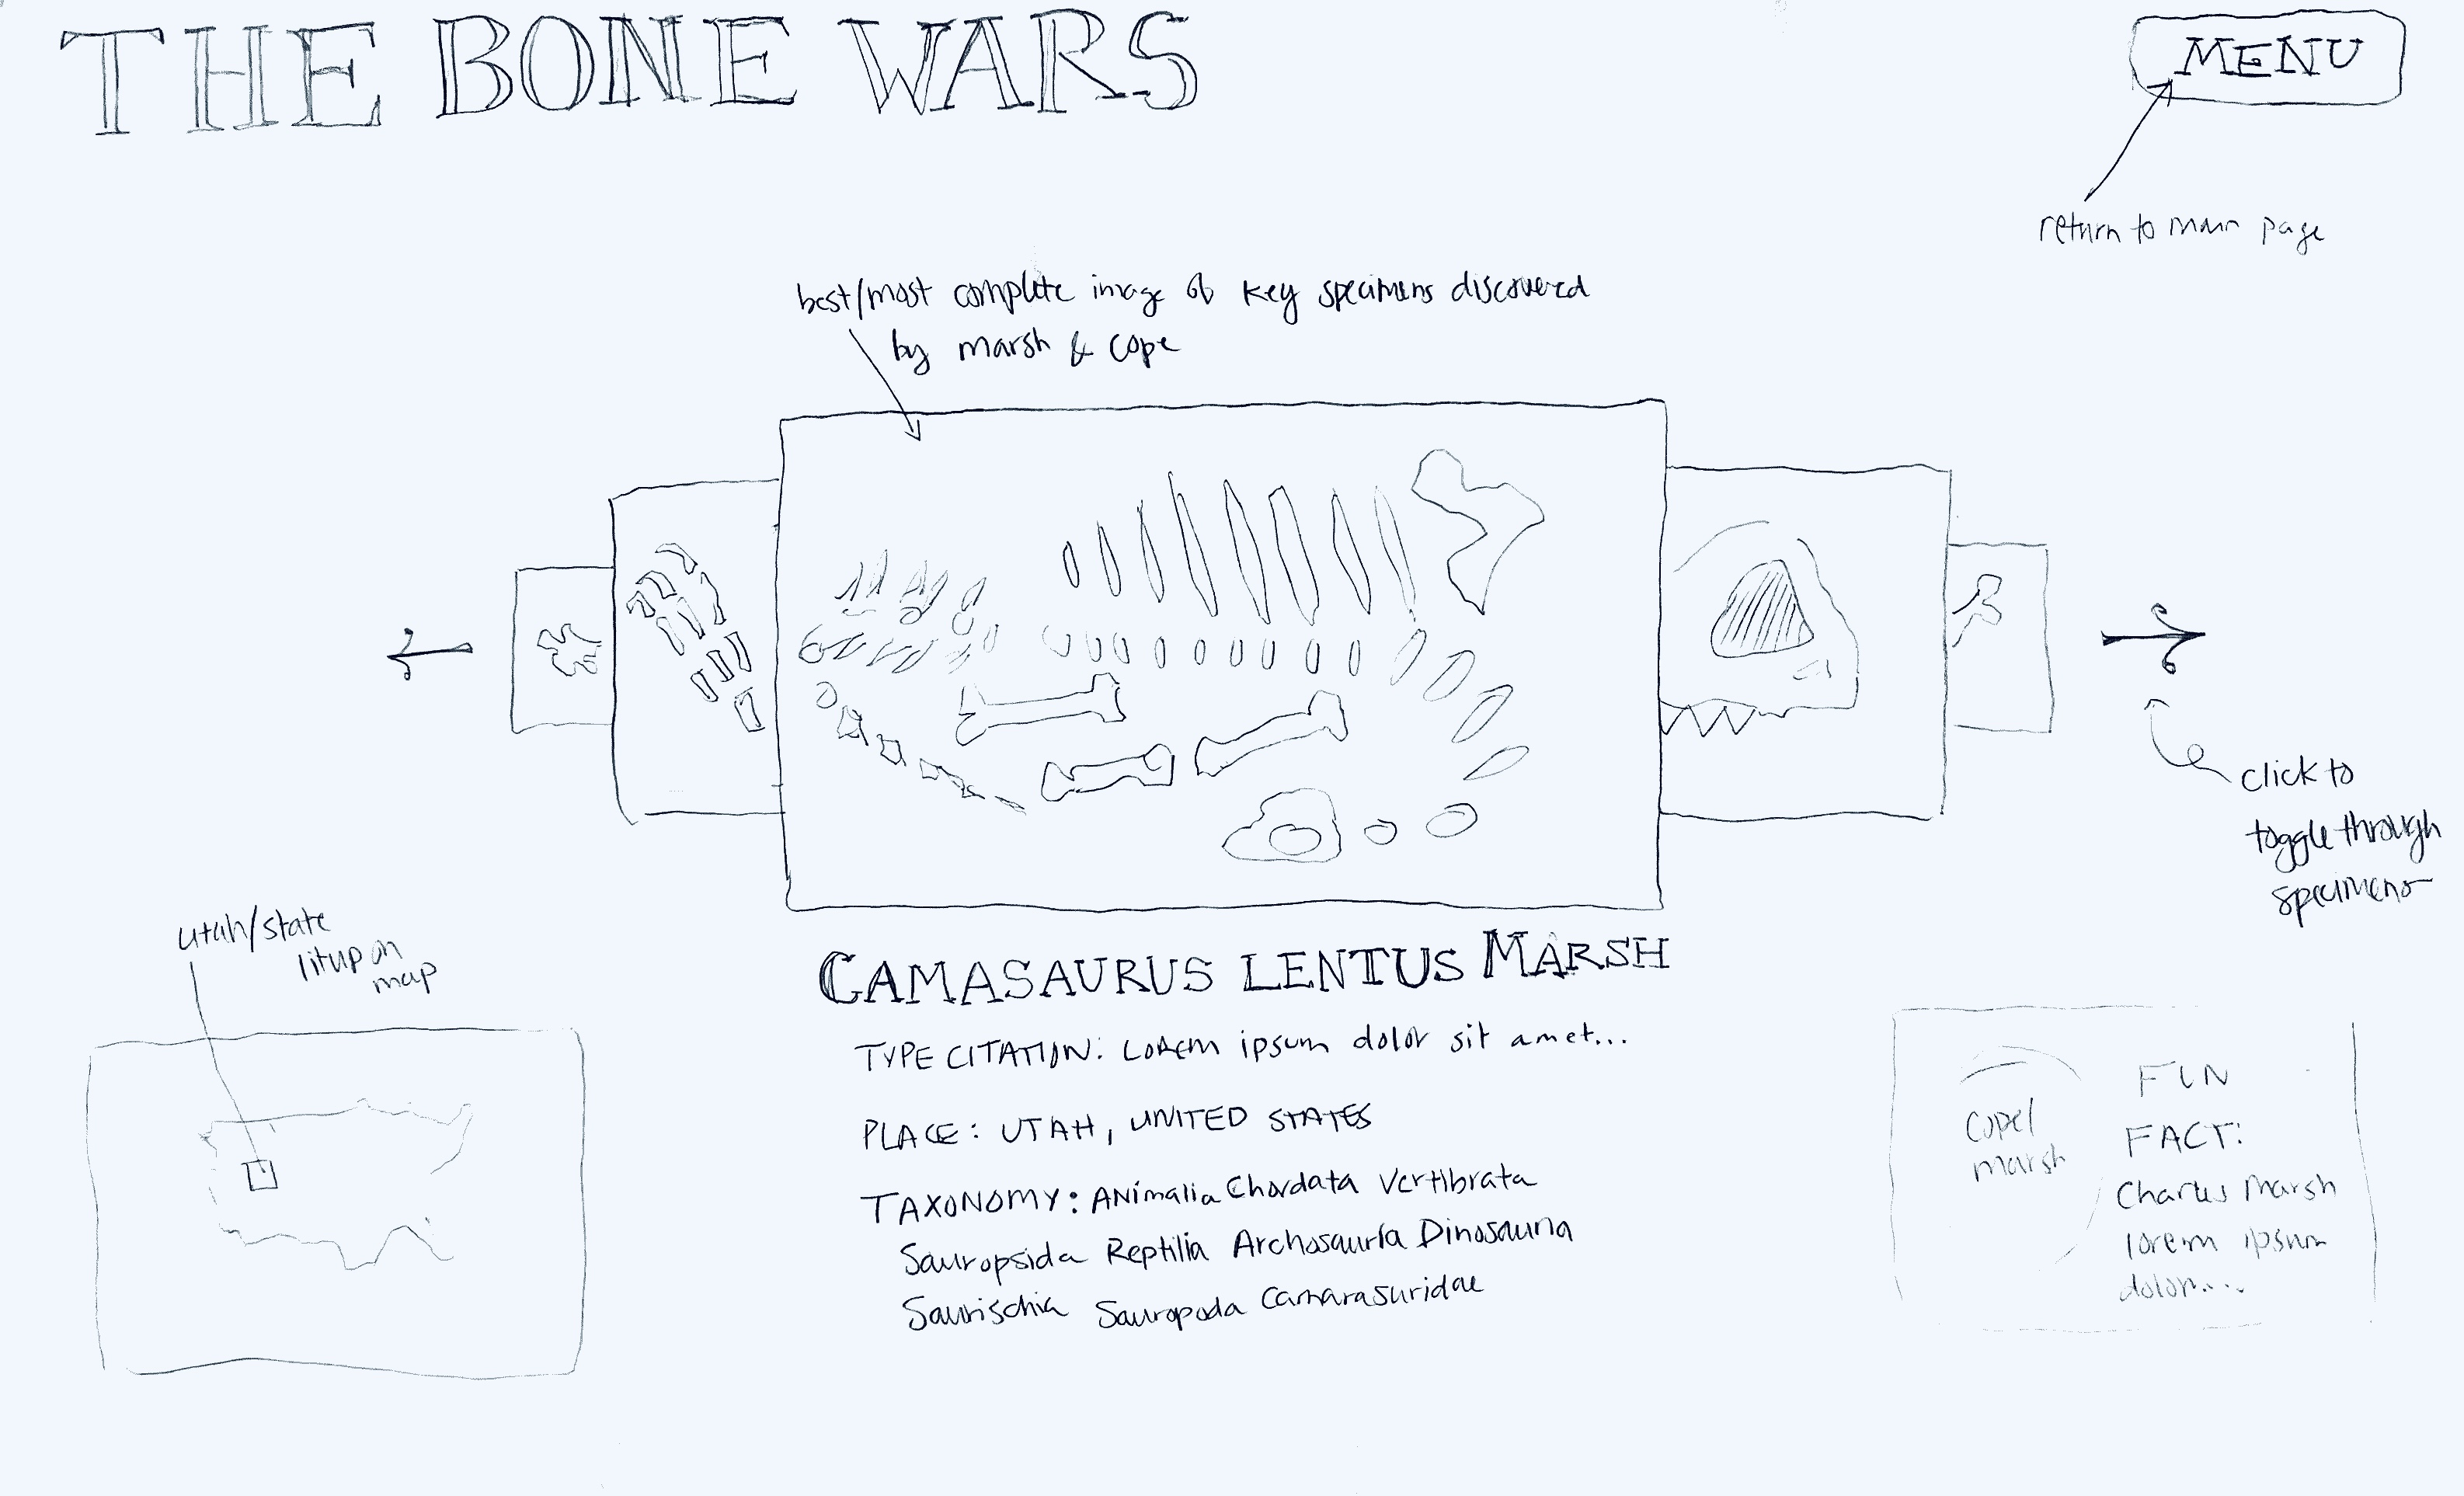 THE BONE WARS
MENU
return to main page
best/most complete image of key specimens discovered
by marsh & cope
click to
toggle through
specimens
utah/state
lit up on
map
CAMASAURUS LENTUS MARSH
TYPE CITATION: Lorem ipsum dolor sit amet...
PLACE: UTAH, UNITED STATES
TAXONOMY: Animalia Chordata Vertibrata
Sauropsida Reptilia Archosauria Dinosauria
Saurischia Sauropoda Camarasuridae
Cope/
marsh
FUN
FACT:
Charles Marsh
lorem ipsum
dolor....